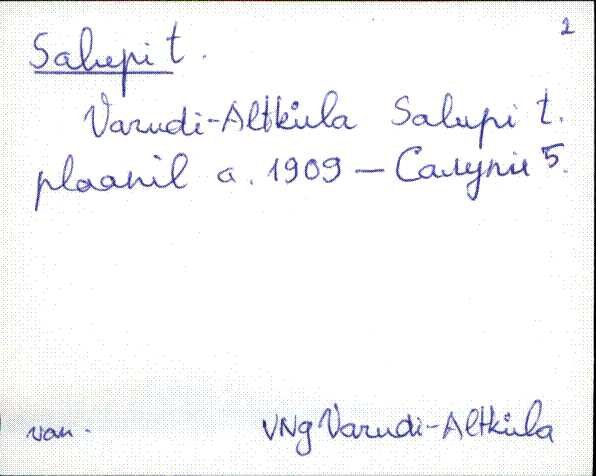 2
Salupi t.
Varudi-Altküla Salupi t.
plaanil a. 1909 — Салупи 5.
van.
VNg Varudi-Altküla